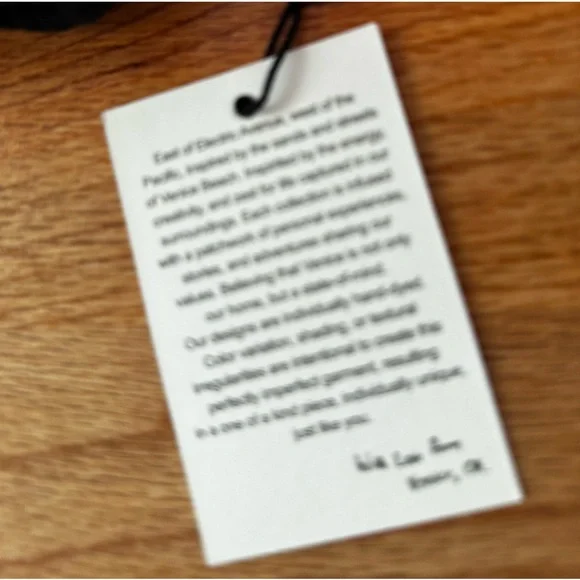 East of Electric Avenue, west of the
Pacific, inspired by the sands and streets
of Venice Beach. Impelled by the energy,
creativity, and zest for life captured in our
surroundings. Each collection is infused
with a patchwork of personal experiences,
stories, and adventures shaping our
values. Believing that Venice is not only
our home, but a state-of-mind.
Our designs are individually hand-dyed.
Color variation, shading, or textural
irregularities are intentional to create this
perfectly imperfect garment, resulting
in a one of a kind piece, individually unique,
just like you.